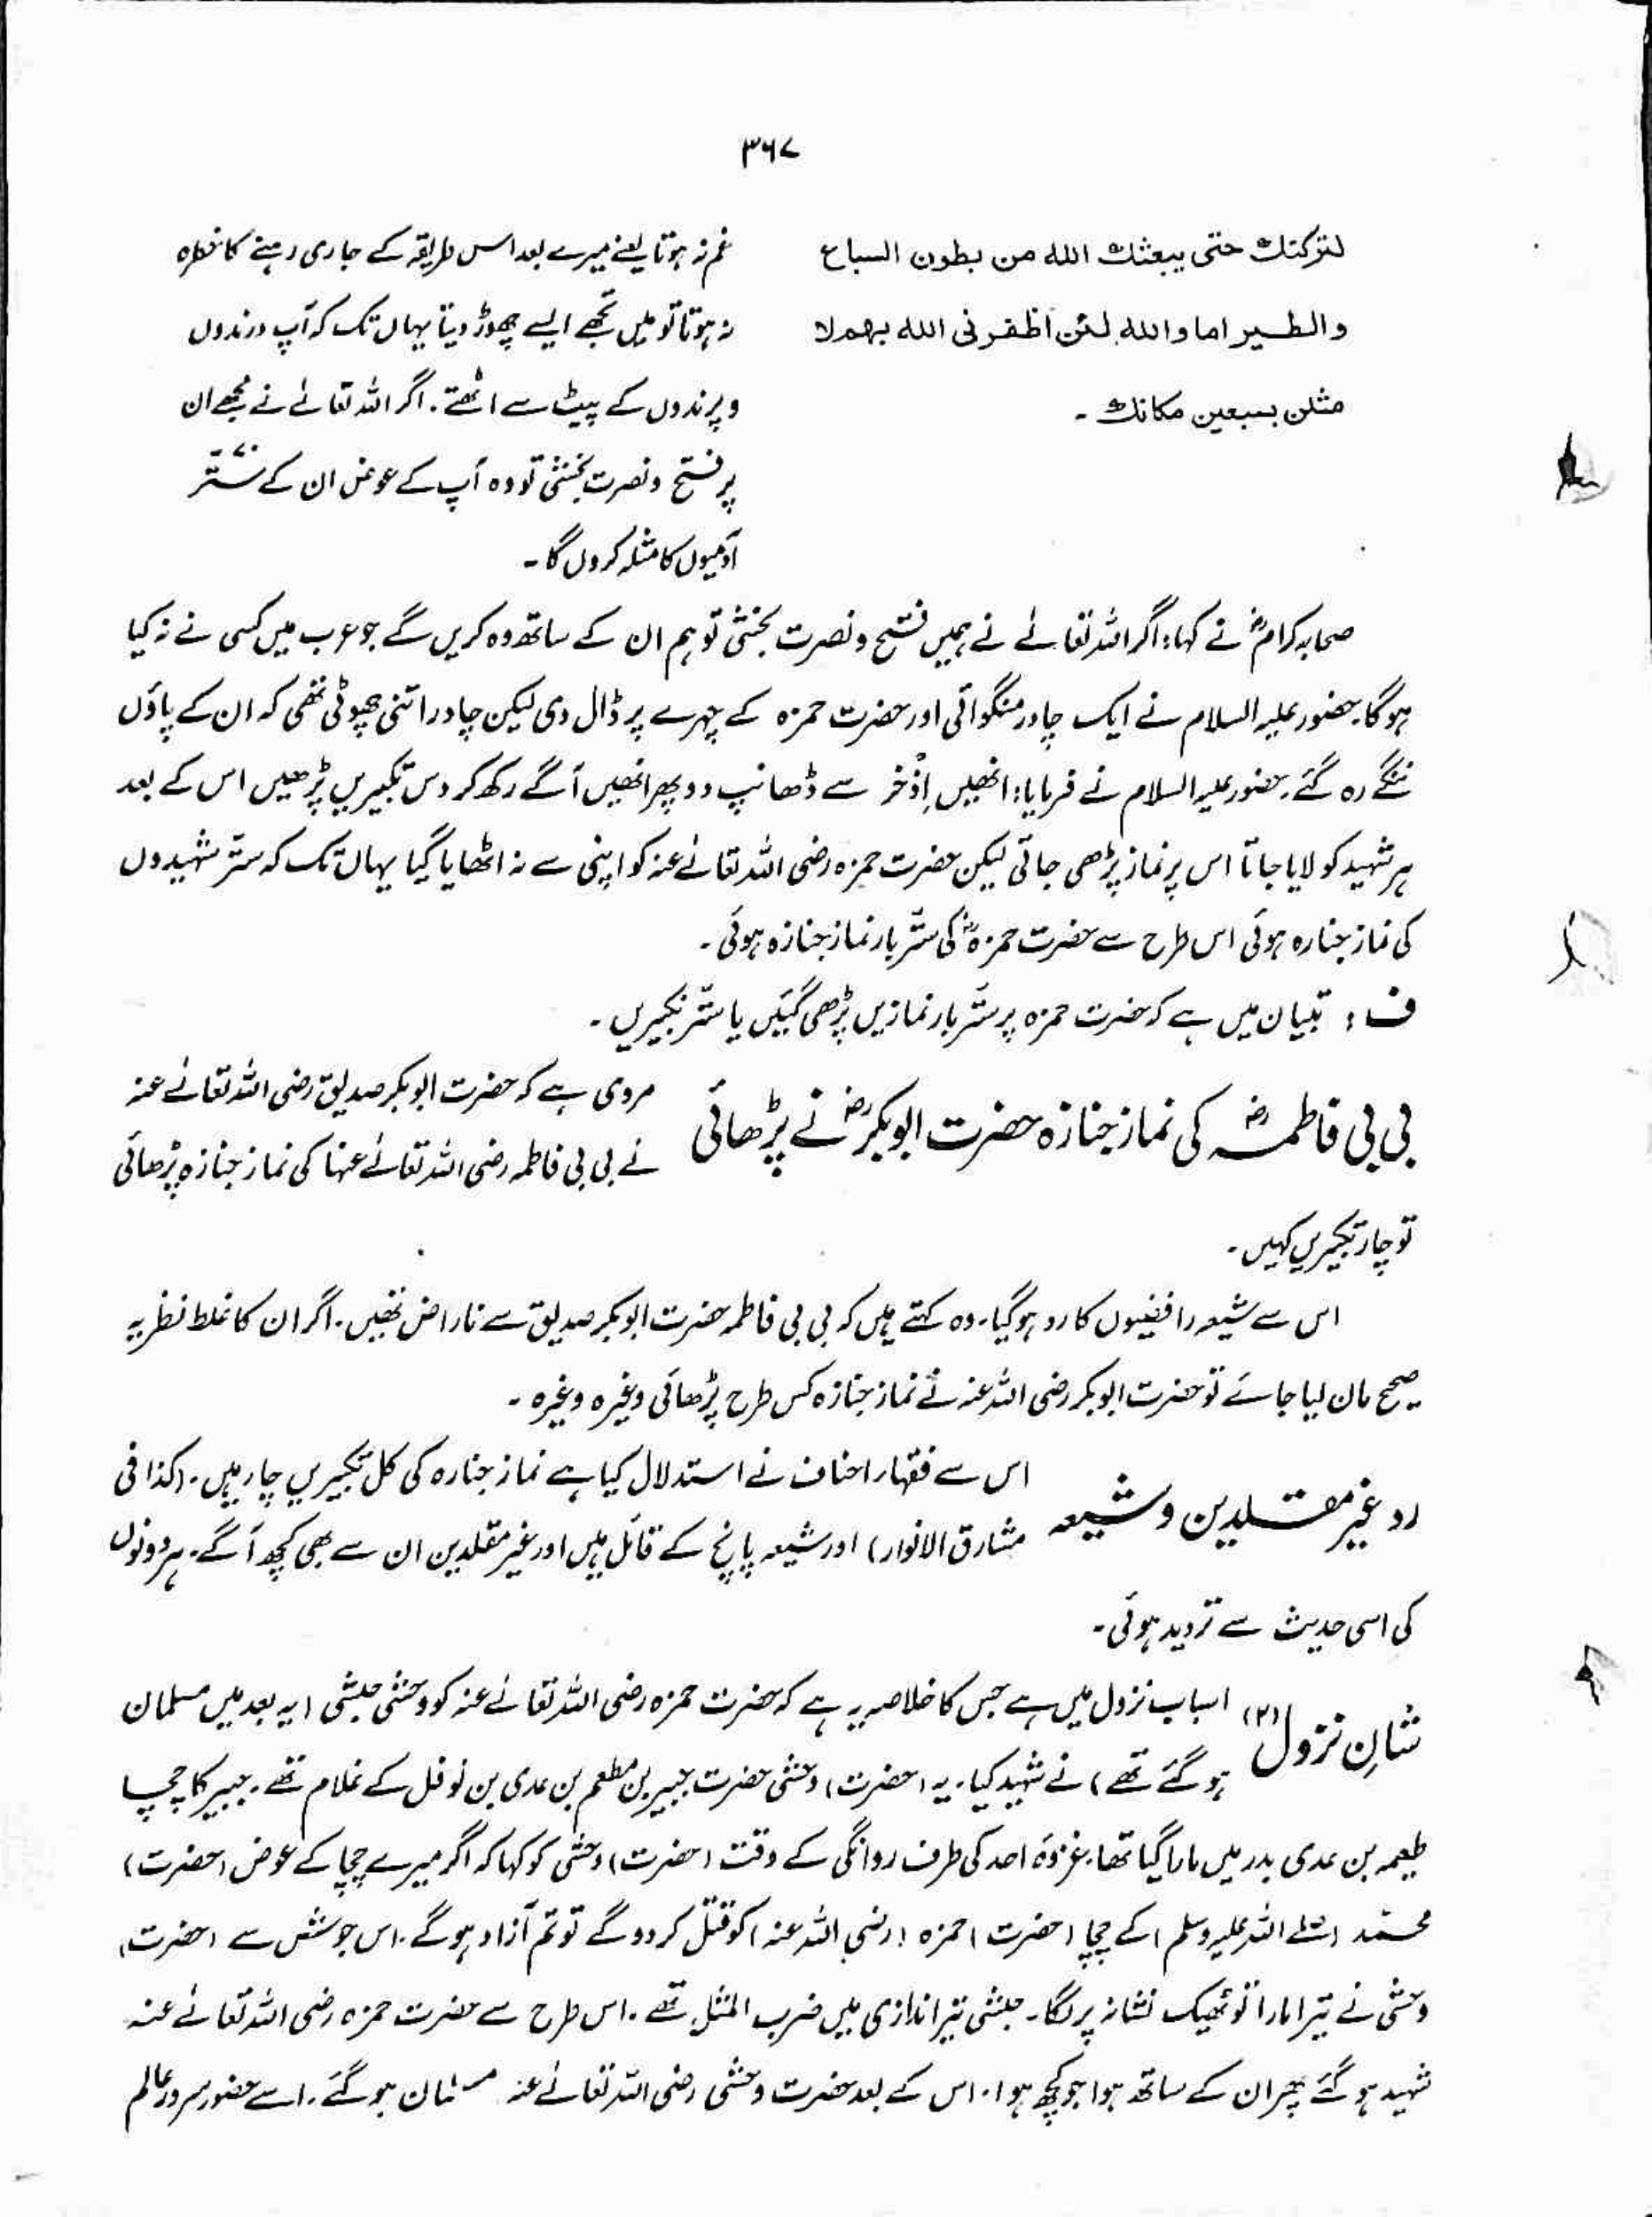 ۳۶۷
لتركتك حتى يبعثك الله من بطون السباع
والطير اما والله لئن اظفرنى الله بهم لا
مثلن بسبعين مكانك ۔
غم نہ ہوتا یعنے میرے بعد اس طریقہ کے جاری رہنے کا خطرہ
نہ ہوتا تو میں تجھے ایسے چھوڑ دیتا یہاں تک کہ آپ درندوں
و پرندوں کے پیٹ سے اٹھتے۔ اگر اللہ تعالےٰ نے مجھے ان
پر فتح و نصرت بخشی تو وہ آپ کے عوض ان کے ستّر
آدمیوں کا مثلہ کروں گا۔
صحابہ کرامؓ نے کہا: اگر اللہ تعالےٰ نے ہمیں فتح و نصرت بخشی تو ہم ان کے ساتھ وہ کریں گے جو عرب میں کسی نے نہ کیا
ہوگا۔ حضور علیہ السلام نے ایک چادر منگوائی اور حضرت حمزہ کے چہرے پر ڈال دی لیکن چادر اتنی چھوٹی تھی کہ ان کے پاؤں
ننگے رہ گئے۔ حضور علیہ السلام نے فرمایا: انھیں اِذْخر سے ڈھانپ دو پھر انھیں آگے رکھ کر دس تکبیریں پڑھیں اس کے بعد
ہر شہید کو لایا جاتا اس پر نماز پڑھی جاتی لیکن حضرت حمزہ رضی اللہ تعالےٰ عنہ کو اپنی سے نہ اٹھایا گیا یہاں تک کہ ستّر شہیدوں
کی نماز جنازہ ہوئی اس طرح سے حضرت حمزہؓ کی ستّر بار نماز جنازہ ہوئی۔
ف : تبیان میں ہے کہ حضرت حمزہ پر ستّر بار نمازیں پڑھی گئیں یا ستّر تکبیریں۔
بی بی فاطمہؓ کی نماز جنازہ حضرت ابوبکرؓ نے پڑھائی
مروی ہے کہ حضرت ابوبکر صدیق رضی اللہ تعالےٰ عنہ
نے بی بی فاطمہ رضی اللہ تعالےٰ عنہا کی نماز جنازہ پڑھائی
تو چار تکبیریں کہیں۔
اس سے شیعہ رافضیوں کا رد ہوگیا۔ وہ کہتے ہیں کہ بی بی فاطمہ حضرت ابوبکر صدیق سے ناراض تھیں۔ اگر ان کا غلط نظریہ
صحیح مان لیا جائے تو حضرت ابوبکر رضی اللہ عنہ نے نماز جنازہ کس طرح پڑھائی وغیرہ وغیرہ۔
رد غیر مقلدین و شیعہ
اس سے فقہاء احناف نے استدلال کیا ہے نماز جنازہ کی کل تکبیریں چار ہیں۔ (کذا فی
مشارق الانوار) اور شیعہ پانچ کے قائل ہیں اور غیر مقلدین ان سے بھی کچھ آگے۔ ہر دونوں
کی اسی حدیث سے تردید ہوئی۔
شانِ نزول (۲)
اسباب نزول میں ہے جس کا خلاصہ یہ ہے کہ حضرت حمزہ رضی اللہ تعالےٰ عنہ کو وحشی حبشی (یہ بعد میں مسلمان
ہو گئے تھے) نے شہید کیا۔ یہ (حضرت) وحشی حضرت جبیر بن مطعم بن عدی بن نوفل کے غلام تھے۔ جبیر کا چچا
طعیمہ بن عدی بدر میں مارا گیا تھا۔ غزوۂ احد کی طرف روانگی کے وقت (حضرت) وحشی کو کہا کہ اگر میرے چچا کے عوض (حضرت)
محمّد (صلے اللہ علیہ وسلم) کے چچا (حضرت) حمزہ (رضی اللہ عنہ) کو قتل کر دو گے تو تم آزاد ہو گے۔ اس جوش سے (حضرت)
وحشی نے تیر مارا تو ٹھیک نشانہ پر لگا۔ حبشی تیر اندازی میں ضرب المثل تھے۔ اس طرح سے حضرت حمزہ رضی اللہ تعالےٰ عنہ
شہید ہو گئے پھر ان کے ساتھ ہوا جو کچھ ہوا۔ اس کے بعد حضرت وحشی رضی اللہ تعالےٰ عنہ مسلمان ہو گئے۔ اسے حضور سرور عالم